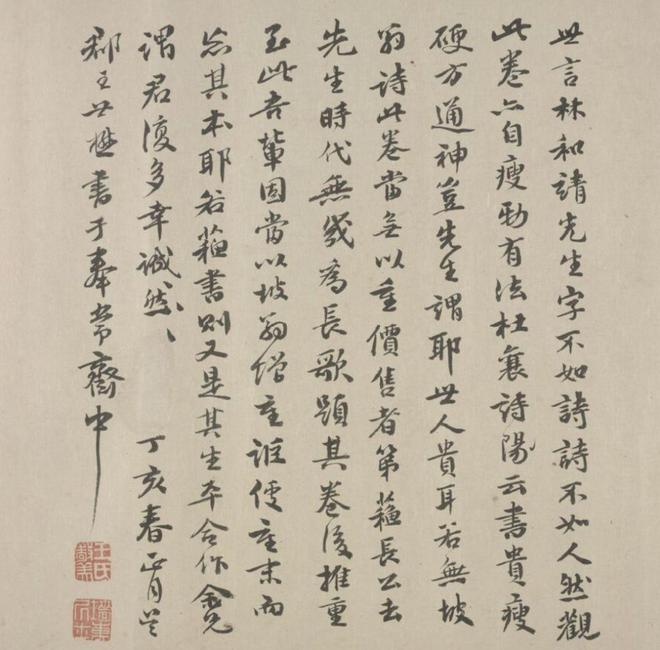 世言林和靖先生字不如詩詩不如人然觀
此卷亦自瘦勁有法杜襄詩陽云書貴瘦
硬方通神豈先生謂耶世人貴耳若無坡
翁詩此卷當無以重價售者第蘓長公去
先生時代無幾為長歌題其卷後推重
至此吾輩固當以坡翁增重誰使重末而
忘其本耶若蘓書則又是其生平合作兄
謂君復多幸誠然〻丁亥春正月吳
郡王世懋書于奉常齋中
王氏敬美